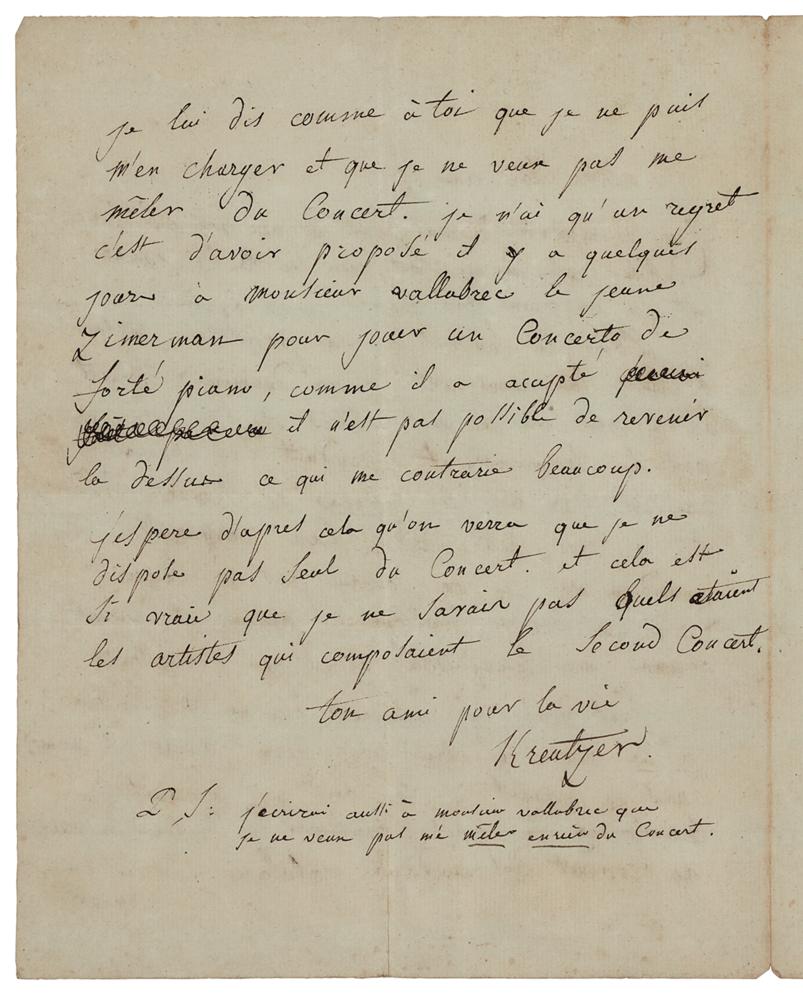 je lui dis comme à toi que je ne puis
m'en charger et que je ne veux pas me
mêler du Concert. je n'ai qu'un regret
c'est d'avoir proposé il y a quelques
jours à monsieur vallabrec le jeune
Zimerman pour jouer un Concerto de
forté piano, comme il a acupté
il n'est pas possible de revenir
la dessus ce qui me contrarie beaucoup.
j'espere d'apres cela qu'on verra que je ne
dispose pas seul du Concert. et cela est
si vraie que je ne savais pas quels étaient
les artistes qui composaient le second Concert.
ton ami pour la vie
Kreutzer.
P S: j'ecrirai aussi à monsieur vallabrec que
je ne veux pas me mêler enrien du Concert.